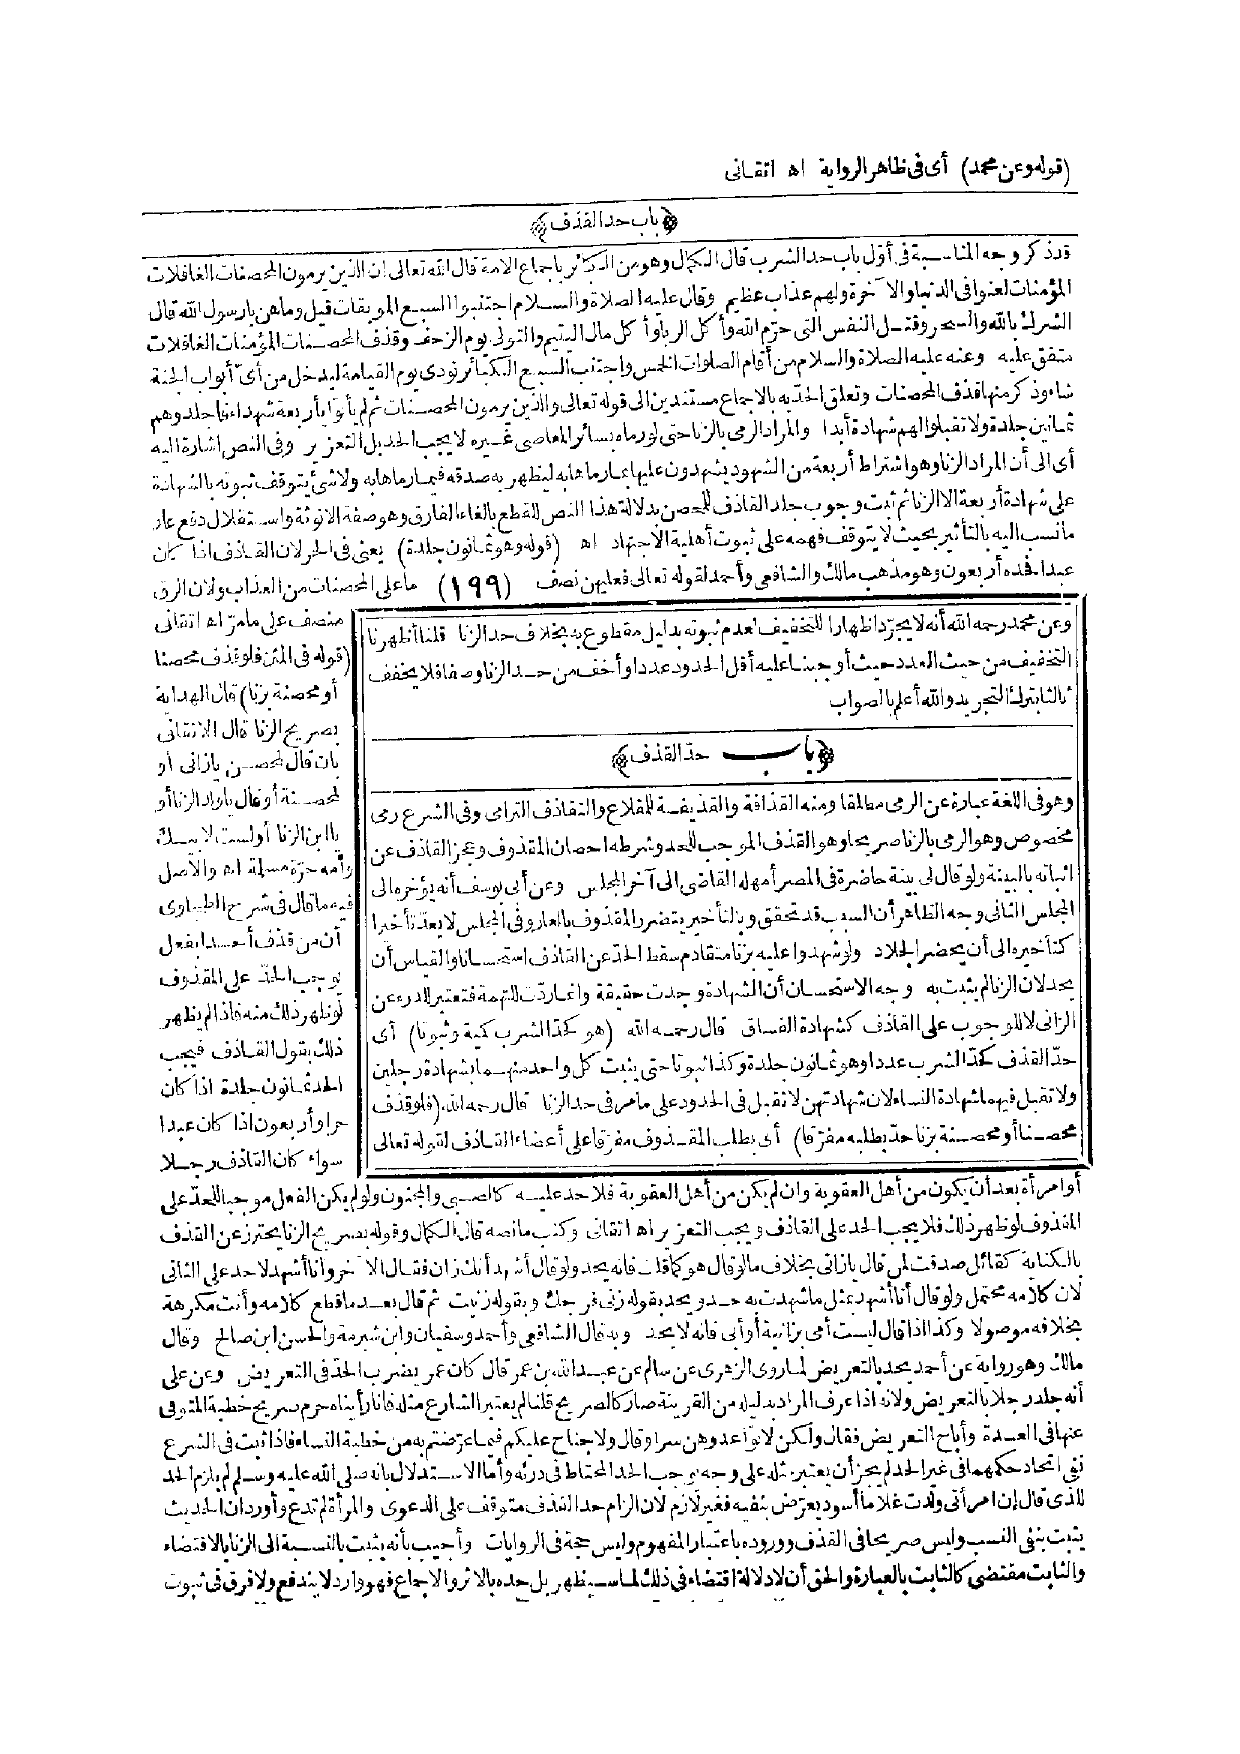 (قوله وعن محمد) أى فى ظاهر الرواية اه اتقانى
﴿باب حد القذف﴾
قد ذكر وجه المناسبة فى أول باب حد الشرب قال الكمال وهو من الكبائر باجماع الامة قال الله تعالى ان الذين يرمون المحصنات الغافلات
المؤمنات لعنوا فى الدنيا والآخرة ولهم عذاب عظيم وقال عليه الصلاة والسلام اجتنبوا السبع الموبقات قيل وما هن يا رسول الله قال
الشرك بالله والسحر وقتل النفس التى حرم الله وأكل الربا وأكل مال اليتيم والتولى يوم الزحف وقذف المحصنات المؤمنات الغافلات
متفق عليه وعنه عليه الصلاة والسلام من أقام الصلوات الخمس واجتنب السبع الكبائر نودى يوم القيامة ليدخل من أى أبواب الجنة
شاء وذكر منها قذف المحصنات وتعلق الحد به بالاجماع مستندين الى قوله تعالى والذين يرمون المحصنات ثم لم يأتوا بأربعة شهداء فاجلدوهم
ثمانين جلدة ولا تقبلوا لهم شهادة أبدا والمراد الرمى بالزنا حتى لو رماه بسائر المعاصى غيره لا يجب الحد بل التعزير وفى النص اشارة اليه
أى الى أن المراد الزنا وهو اشتراط أربعة من الشهود يشهدون عليها بما رماها به ليظهر به صدقه فيما رماها به ولا شئ يتوقف ثبوته بالشهادة
على شهادة أربعة الا الزنا ثم ثبت وجوب جلد القاذف للمحصن بدلالة هذا النص للقطع بالغاء الفارق وهو صفة الانوثة واستقلال دفع عار
ما نسب اليه بالتأثير بحيث لا يتوقف فهمه على ثبوت أهلية الاجتهاد اه (قوله وهو ثمانون جلدة) يعنى فى الحر لان القاذف اذا كان
عبدا فحده أربعون وهو مذهب مالك والشافعى وأحمد لقوله تعالى فعليهن نصف (١٩٩) ما على المحصنات من العذاب ولان الرق
منصف على ما مر اه اتقانى
(قوله فى المتن فلو قذف محصنا
أو محصنة بزنا) قال الهداية
بصريح الزنا قال الاتقانى
بان قال لمحصن يا زانى أو
لمحصنة أو قال يا ولد الزنا أو
يا ابن الزنا أو لست لابيك
وأمه حرة مسلمة اه والاصل
فيه ما قال فى شرح الطحاوى
أن من قذف أحدا بفعل
يوجب الحد على المقذوف
لو ظهر ذلك منه فاذا لم يظهر
ذلك بقول القاذف فيجب
الحد ثمانون جلدة اذا كان
حرا وأربعون اذا كان عبدا
سواء كان القاذف رجلا
وعن محمد رحمه الله أنه لا يجرد اظهارا للتخفيف لعدم ثبوته بدليل مقطوع به بخلاف حد الزنا قلنا أظهرنا
التخفيف من حيث العدد حيث أوجبنا عليه أقل الحدود عددا وأخف من حد الزنا وصفا فلا يخفف
ثالثا بترك التجريد والله أعلم بالصواب
﴿باب حد القذف﴾
وهو فى اللغة عبارة عن الرمى مطلقا ومنه القذافة والقذيفة للمقلاع والتقاذف الترامى وفى الشرع رمى
مخصوص وهو الرمى بالزنا صريحا وهو القذف الموجب للحد وشرطه احصان المقذوف وعجز القاذف عن
اثباته بالبينة ولو قال لى بينة حاضرة فى المصر أمهله القاضى الى آخر المجلس وعن أبى يوسف أنه يؤخره الى
المجلس الثانى وجه الظاهر أن السبب قد تحقق وبالتأخير يتضرر المقذوف بالعار وفى المجلس لا يعد تأخيرا
كتأخيره الى أن يحضر الجلاد ولو شهدوا عليه بزنا متقادم سقط الحد عن القاذف استحسانا والقياس أن
يحد لان الزنا لم يثبت به وجه الاستحسان أن الشهادة وجدت حقيقة وانما ردت للتهمة فتعتبر للدرء عن
الزانى لا للوجوب على القاذف كشهادة الفساق قال رحمه الله (هو كحد الشرب كمية وثبوتا) أى
حد القذف كحد الشرب عددا وهو ثمانون جلدة وكذا ثبوتا حتى يثبت كل واحد منهما بشهادة رجلين
ولا تقبل فيهما شهادة النساء لان شهادتهن لا تقبل فى الحدود على ما مر فى حد الزنا قال رحمه الله (فلو قذف
محصنا أو محصنة بزنا حد بطلبه مفرقا) أى بطلب المقذوف مفرقا على أعضاء القاذف لقوله تعالى
أو امرأة بعد أن يكون من أهل العقوبة وان لم يكن من أهل العقوبة فلا حد عليه كالصبى والمجنون ولو لم يكن الفعل موجبا للحد على
المقذوف لو ظهر ذلك فلا يجب الحد على القاذف ويجب التعزير اه اتقانى وكتب ما نصه قال الكمال وقوله بصريح الزنا يحترز عن القذف
بالكناية كقائل صدقت لمن قال يا زانى بخلاف ما لو قال هو كما قلت فانه يحد ولو قال أشهد أنك زان فقال الآخر وأنا أشهد لا حد على الثانى
لان كلامه محتمل ولو قال أنا أشهد بمثل ما شهدت به حد ويحد بقوله زنى فرجك وبقوله زنيت ثم قال بعد ما قطع كلامه وأنت مكرهة
بخلافه موصولا وكذا اذا قال ليست أمى بزانية أو أبى فانه لا يحد وبه قال الشافعى وأحمد وسفيان وابن شبرمة والحسن ابن صالح وقال
مالك وهو رواية عن أحمد يحد بالتعريض لما روى الزهرى عن سالم عن عبد الله بن عمر قال كان عمر يضرب الحد فى التعريض وعن على
أنه جلد رجلا بالتعريض ولانه اذا عرف المراد بدليله من القرينة صار كالصريح قلنا لم يعتبر الشارع مثله فانا رأيناه حرم صريح خطبة المتوفى
عنها فى العدة وأباح التعريض فقال ولكن لا تواعدوهن سرا وقال ولا جناح عليكم فيما عرضتم به من خطبة النساء فاذا ثبت فى الشرع
نفى اتحاد حكمهما فى غير الحد لم يجز أن يعتبر مثله على وجه يوجب الحد المحتاط فى درئه وأما الاستدلال بانه صلى الله عليه وسلم لم يلزم الحد
للذى قال إن امرأتى ولدت غلاما أسود يعرض بنفيه فغير لازم لان الزام حد القذف متوقف على الدعوى والمرأة لم تدع وأورد ان الحديث
يثبت بنفى النسب وليس صريحا فى القذف ووروده باعتبار المفهوم وليس حجة فى الروايات وأجيب بأنه يثبت بالنسبة الى الزنا بالاقتضاء
والثابت مقتضى كالثابت بالعبارة والحق أن لا دلالة اقتضاء فى ذلك لما سيظهر بل حده بالاثر والاجماع فهو وارد لا يندفع ولا فرق فى ثبوت